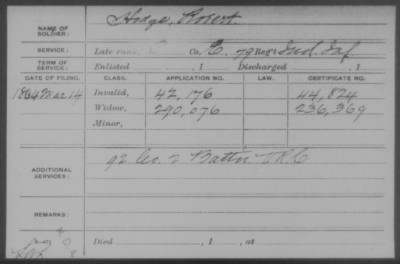 NAME OF SOLDIER: Hodge, Robert
SERVICE: Late rank, Co. E. 79 Reg't Ind. Inf
TERM OF SERVICE: Enlisted , 1 Discharged , 1
DATE OF FILING. CLASS. APPLICATION NO. LAW. CERTIFICATE NO.
1864 Mar 14 Invalid, 42,176 44,824
Widow, 290,076 236,369
Minor,
ADDITIONAL SERVICES: 92 Co. 2 Batt'n V.R.C
REMARKS:
Died , 1 , at